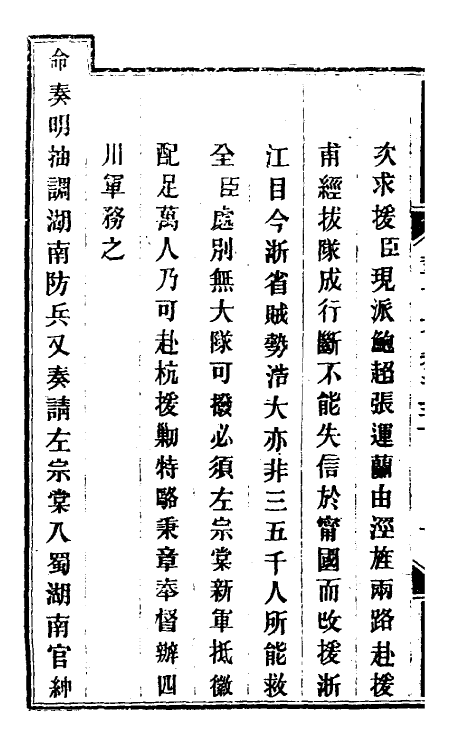 次求援臣現派鮑超張運蘭由涇旌兩路赴援
甫經拔隊成行斷不能失信於甯國而改援浙
江目今浙省賊勢浩大亦非三五千人所能救
全臣處別無大隊可撥必須左宗棠新軍抵徽
配足萬人乃可赴杭援勦特駱秉章奉督辦四
川軍務之
命奏明抽調湖南防兵又奏請左宗棠入蜀湖南官紳